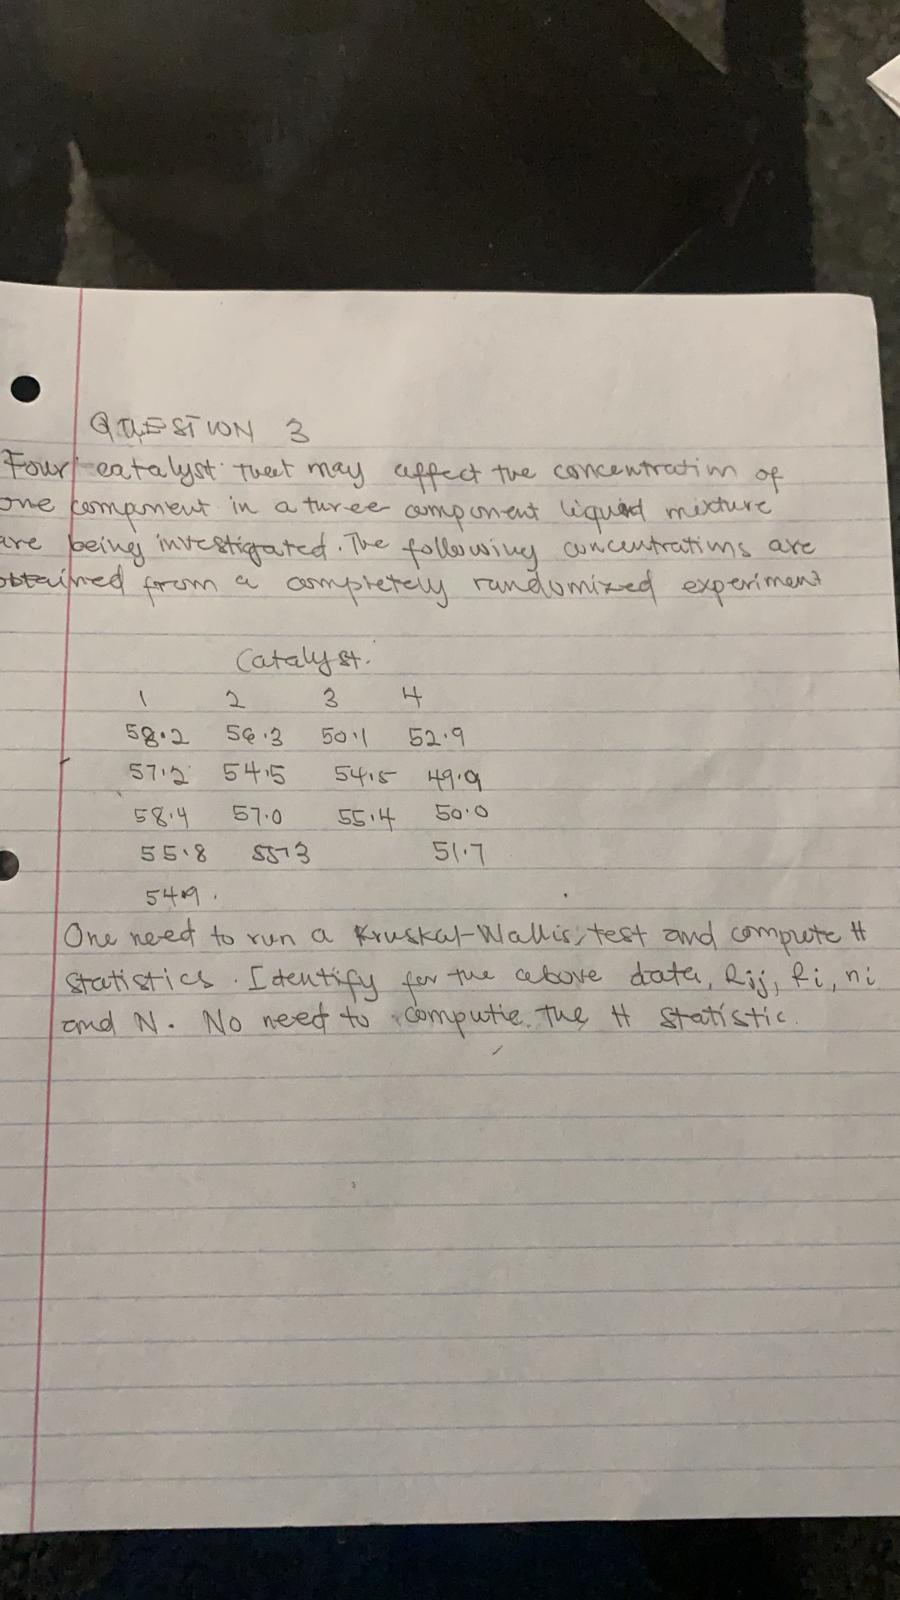 QUESTION 3
Four catalyst that may affect the concentration of
one component in a three component liquid mixture
are being investigated. The following concentrations are
obtained from a completely randomized experiment
Catalyst.
1 2 3 4
58.2 56.3 50.1 52.9
57.2 54.5 54.5 49.9
58.4 57.0 55.4 50.0
55.8 55.3 51.7
54.9.
One need to run a Kruskal-Wallis, test and compute H
statistics. Identify for the above data, Rij, Ri, ni
and N. No need to compute the H statistic.